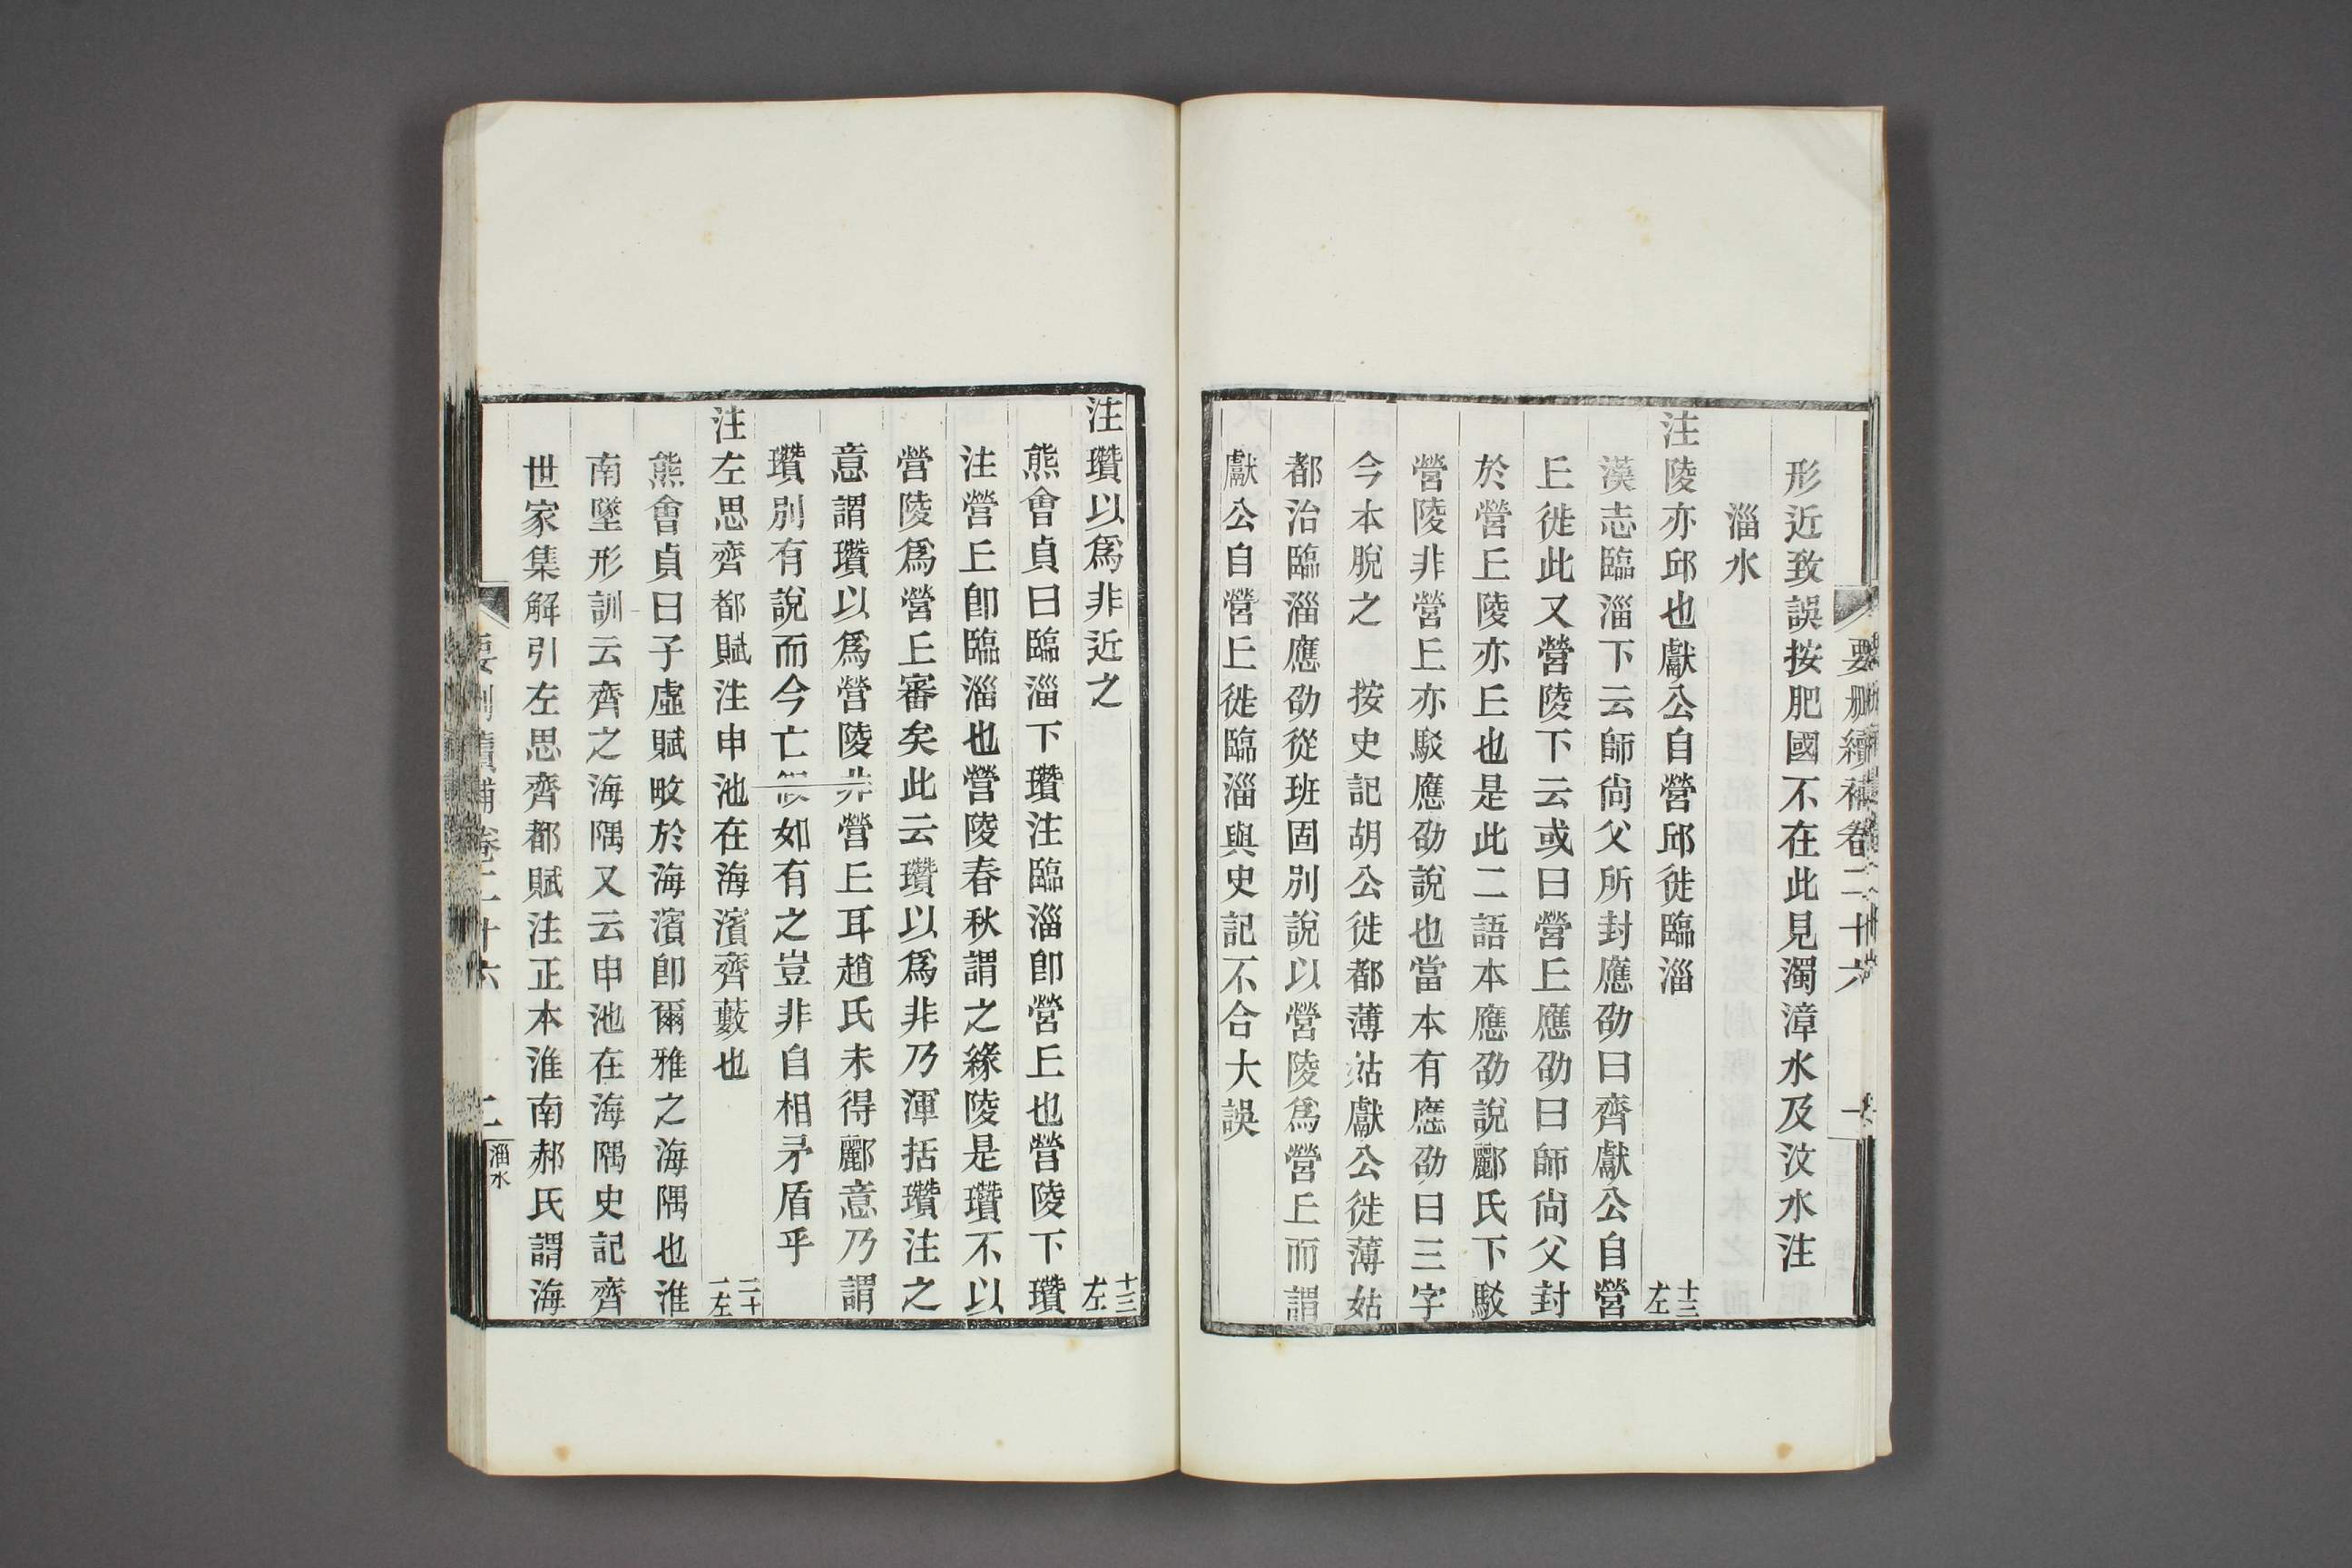 要刪續補卷二十六 一
形近致誤按肥國不在此見濁漳水及汶水注
淄水
注陵亦邱也獻公自營邱徙臨淄 十三左
漢志臨淄下云師尙父所封應劭曰齊獻公自營
丘徙此又營陵下云或曰營丘應劭曰師尙父封
於營丘陵亦丘也是此二語本應劭說酈氏下駁
營陵非營丘亦駁應劭說也當本有應劭曰三字
今本脫之 按史記胡公徙都薄姑獻公徙薄姑
都治臨淄應劭從班固別說以營陵爲營丘而謂
獻公自營丘徙臨淄與史記不合大誤
注瓚以爲非近之 十三左
熊會貞曰臨淄下瓚注臨淄卽營丘也營陵下瓚
注營丘卽臨淄也營陵春秋謂之緣陵是瓚不以
營陵爲營丘審矣此云瓚以爲非乃渾括瓚注之
意謂瓚以爲營陵非營丘耳趙氏未得酈意乃謂
瓚別有說而今亡假如有之豈非自相矛盾乎
注左思齊都賦注申池在海濱齊藪也 二十一左
熊會貞曰子虛賦畋於海濱卽爾雅之海隅也淮
南墬形訓云齊之海隅又云申池在海隅史記齊
世家集解引左思齊都賦注正本淮南郝氏謂海
要刪續補卷二十六 二 淄水